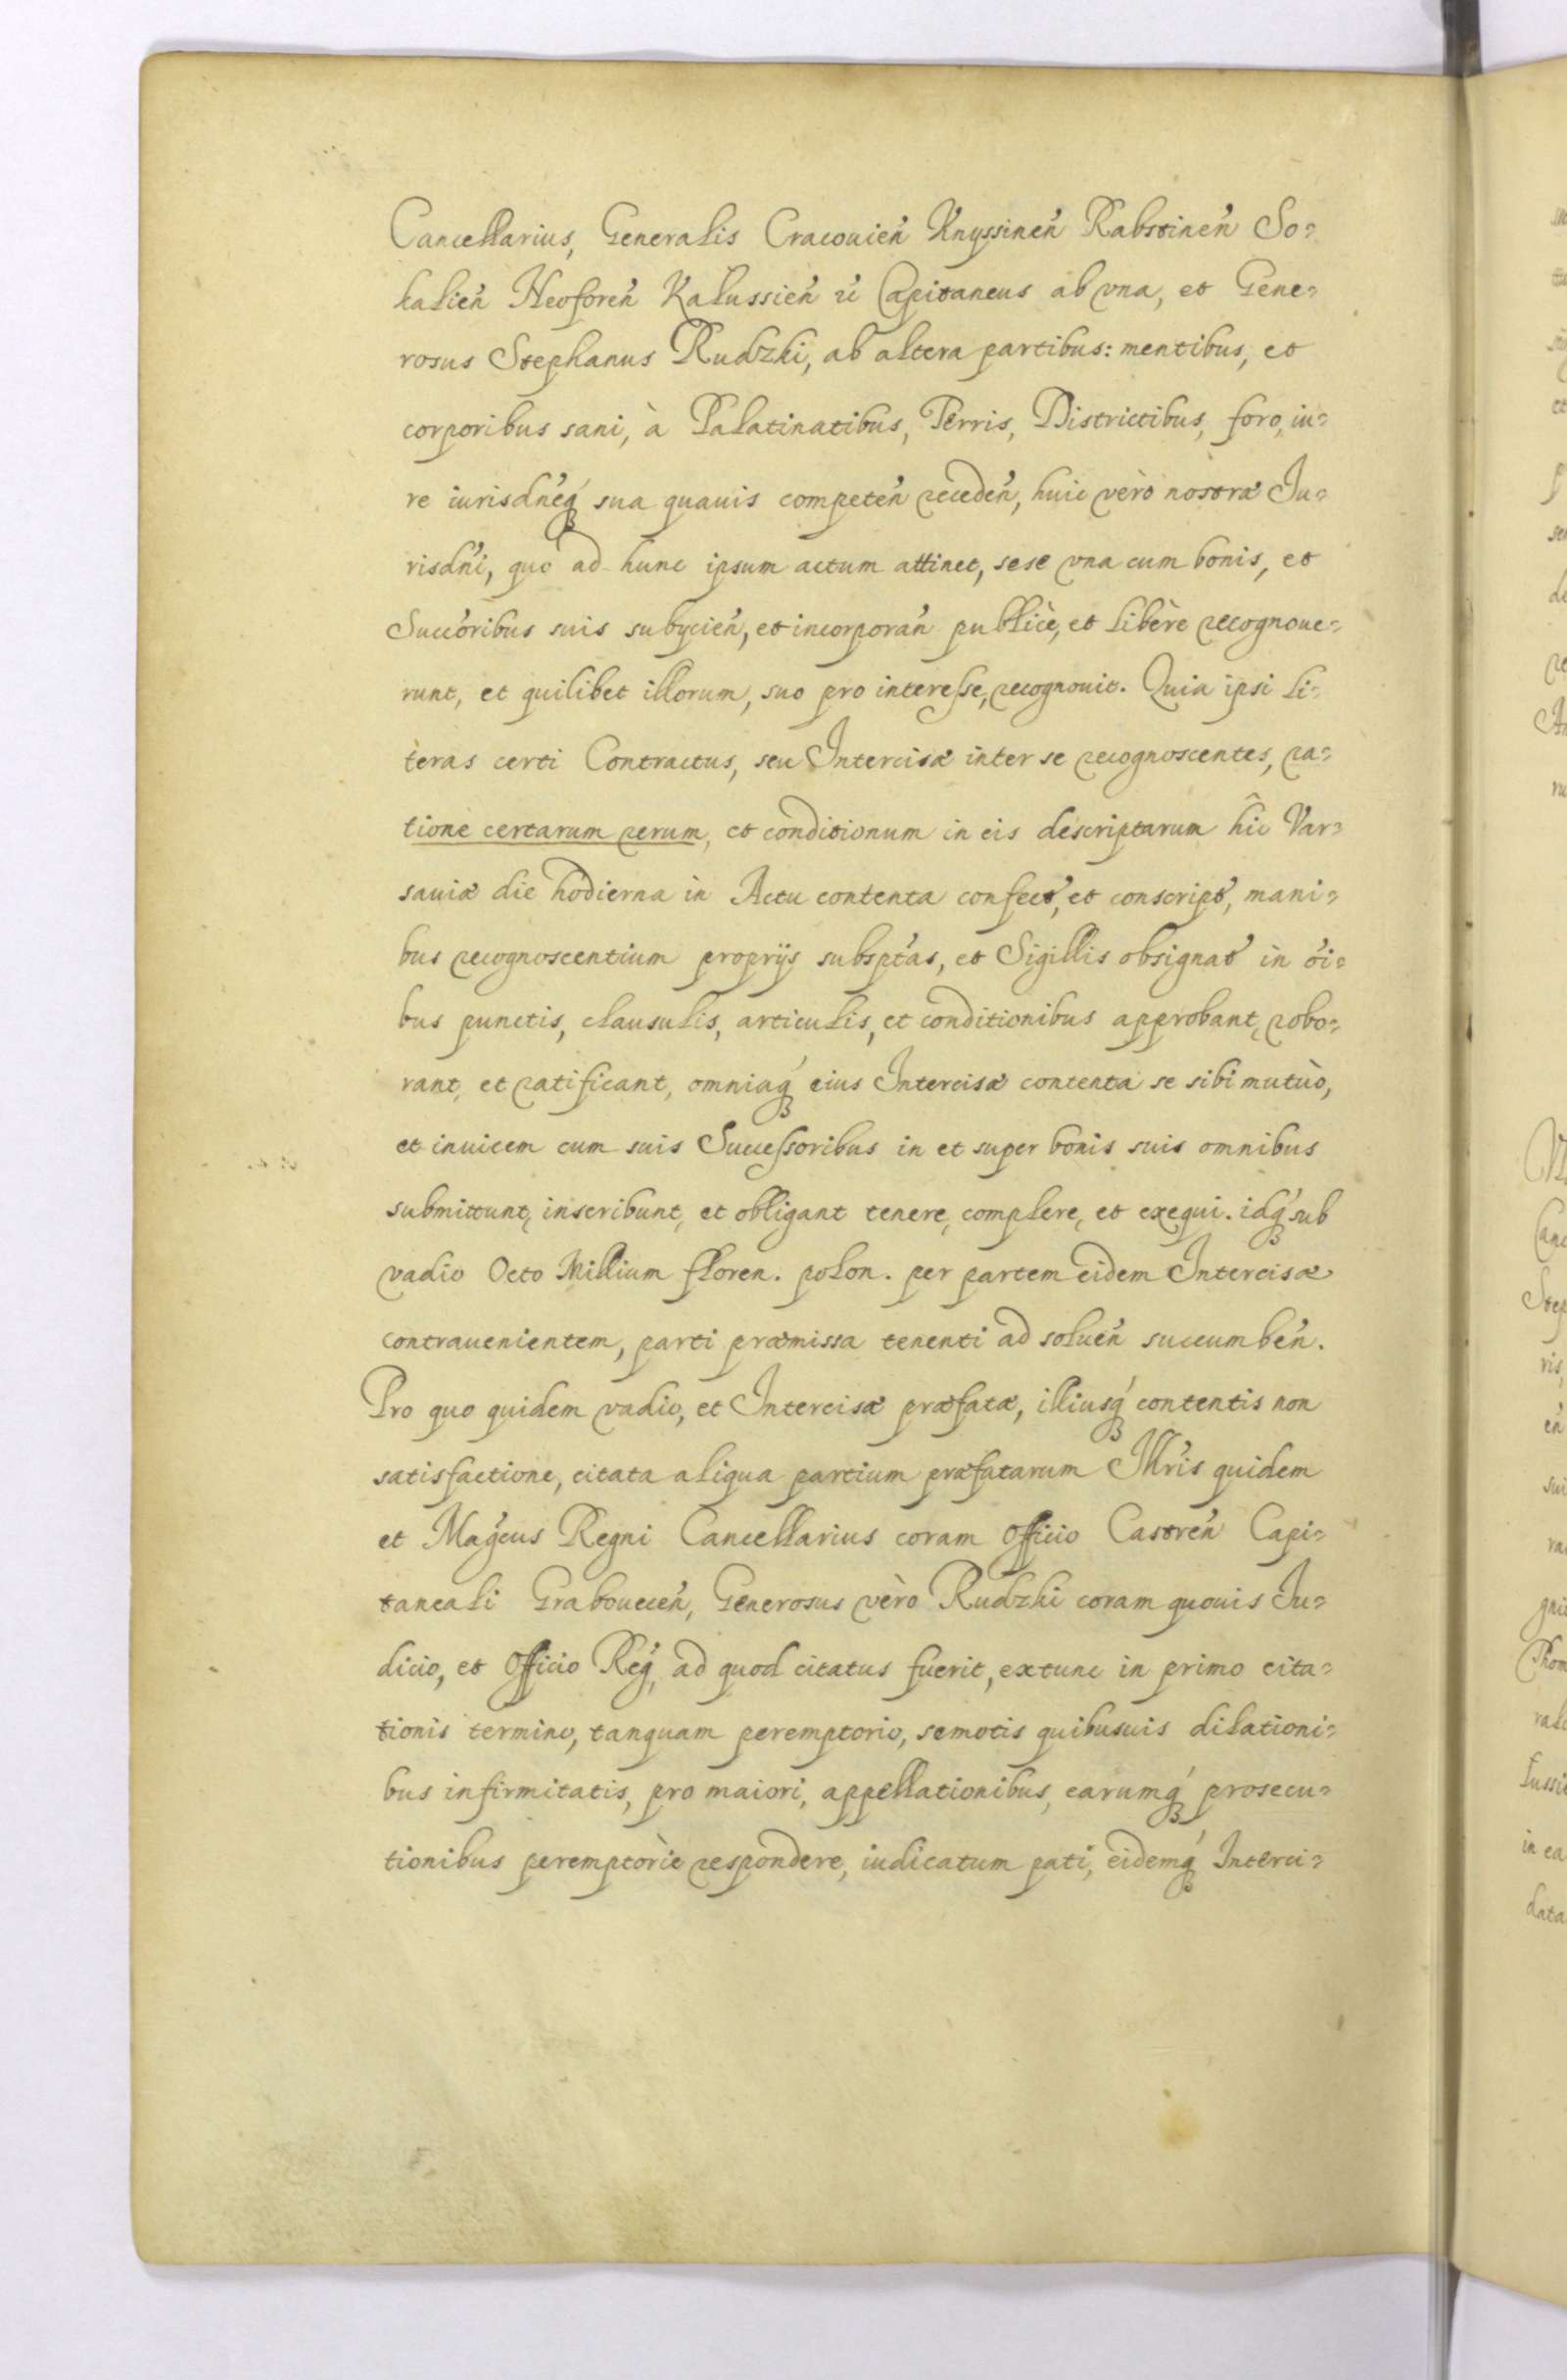 Cancellarius, Generalis Cracouień Knyssineń Rabstineń So=
kalień Neoforeń Kalussień ec̃ Capitaneus ab vna, et Gene=
rosus Stephanus Rudzki, ab altera partibus: mentibus, et
corporibus sani, à Palatinatibus, Terris, Districtibus, foro, iu=
re iurisdńeq́ sua quauis competeń recedeń, huic verò nostræ Ju=
risdńi, quo ad hunc ipsum actum attinet, sese vna cum bonis, et
Succoribus suis subijcień, et incorporań publicè, et liberè recognoue=
runt, et quilibet illorum, suo pro interesse, recognouit. Quia ipsi li=
teras certi Contractus, seu Intercisæ inter se recognoscentes, ra=
tione certarum rerum, et conditionum in eis descriptarum hîc Var=
sauiæ die hodierna in Actu contenta confect, et conscript, mani=
bus recognoscentium proprijs subsptas, et Sigillis obsignat in oi=
bus punctis, clausulis, articulis, et conditionibus approbant, robo=
rant, et ratificant, omniaq́ eius Intercisæ contenta se sibi mutuò,
et inuicem cum suis Successoribus in et super bonis suis omnibus
submittunt, inscribunt, et obligant tenere, complere, et exequi. idq́ sub
vadio Octo Millium floren. polon. per partem eidem Intercisæ
contrauenientem, parti præmissa tenenti ad solueń succumbeń.
Pro quo quidem vadio, et Intercisæ præfatæ, illiusq́ contentis non
satisfactione, citata aliqua partium præfatarum Illris quidem
et Magcus Regni Cancellarius coram Officio Castreń Capi=
taneali Graboueceń, Generosus verò Rudzki coram quouis Ju=
dicio, et Officio Reg, ad quod citatus fuerit, extunc in primo cita=
tionis termino, tanquam peremptorio, semotis quibusuis dilationi=
bus infirmitatis, pro maiori, appellationibus, earumq́ prosecu=
tionibus peremptoriè respondere, iudicatum pati, eidemq́ Interci=